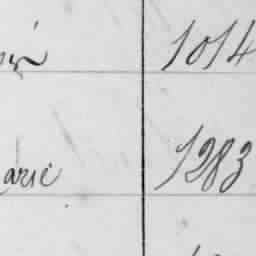 1014
arie 1283